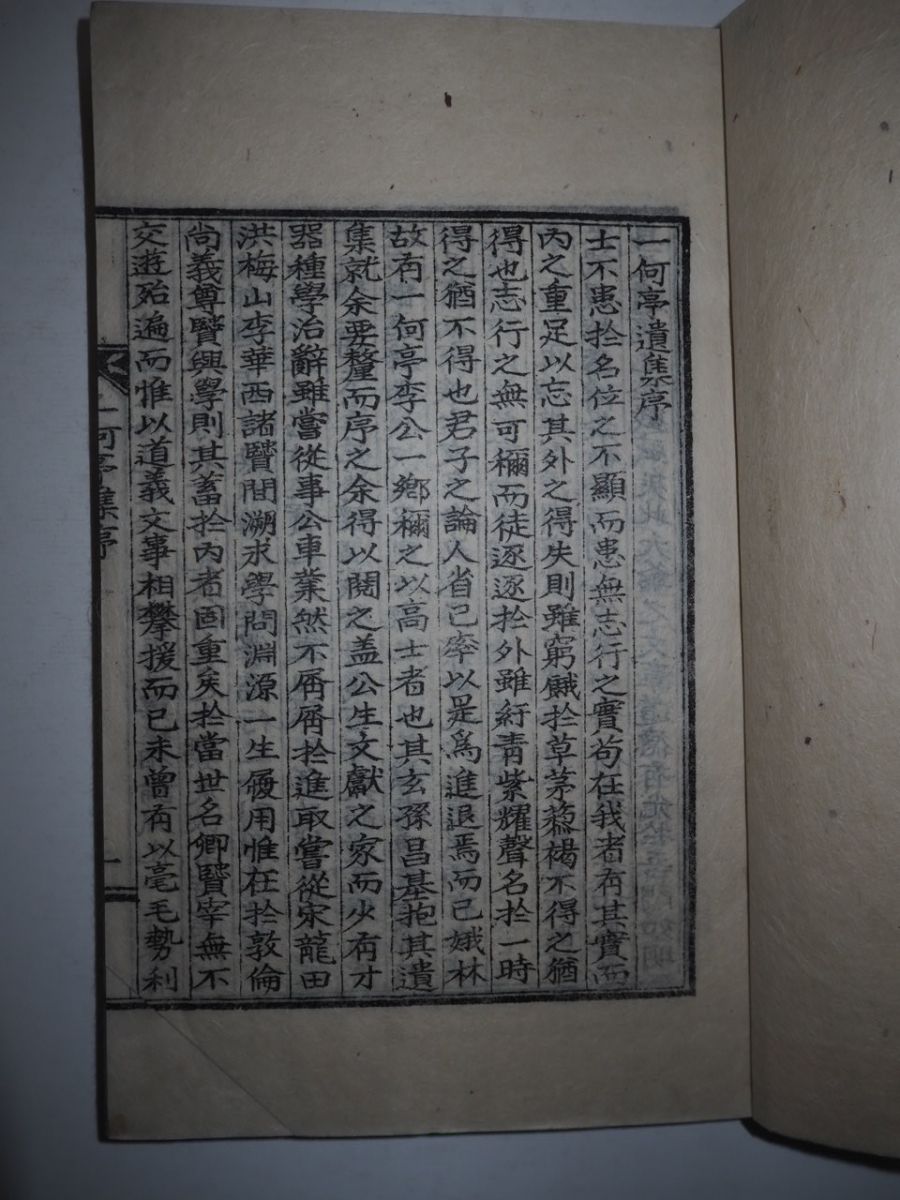 一何亭遺集序
士不患扵名位之不顯而患無志行之實苟在我者有其實而
內之重足以忘其外之得失則雖窮餓扵草茅蒅褐不得之猶
得也志行之無可稱而徒逐逐扵外雖紆靑紫耀聲名扵一時
得之猶不得也君子之論人省己率以是爲進退焉而已娥林
故有一何亭李公一鄕稱之以高士者也其玄孫昌基抱其遺
集就余要釐而序之余得以閱之盖公生文獻之家而少有才
器種學治辭雖嘗從事公車業然不屑屑扵進取嘗從宋龍田
洪梅山李華西諸贒間溯求學問淵源一生履用惟在扵敦倫
尙義尊贒興學則其蓄扵內者固重矣扵當世名卿贒宰無不
交遊殆遍而惟以道義文事相攀援而已未曾有以毫毛勢利
一何亭集序
一